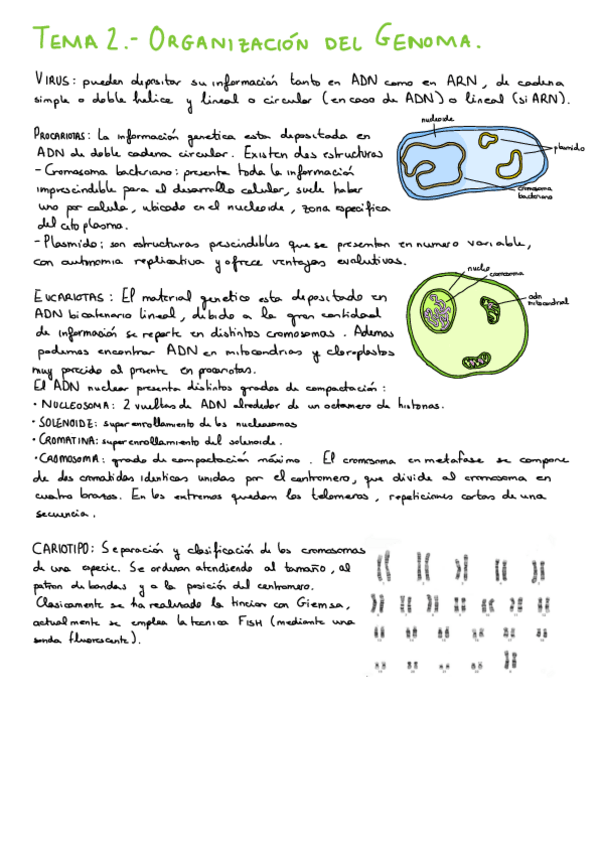 TEMA 2.- ORGANIZACIÓN DEL GENOMA.
VIRUS: pueden depositar su información tanto en ADN como en ARN, de cadena
simple o doble helice y lineal o circular (en caso de ADN) o lineal (si ARN).
PROCARIOTAS: La información genetica esta depositada en
ADN de doble cadena circular. Existen dos estructuras
- Cromosoma bacteriano: presenta toda la información
imprescindible para el desarrollo celular, suele haber
uno por celula, ubicado en el nucleoide, zona especifica
del citoplasma.
- Plasmido: son estructuras prescindibles que se presentan en numero variable,
con autonomia replicativa y ofrece ventajas evolutivas.
nucleoide
plasmido
cromosoma
bacteriano
EUCARIOTAS: El material genetico esta depositado en
ADN bicatenario lineal, debido a la gran cantidad
de información se reparte en distintos cromosomas. Ademas
podemos encontrar ADN en mitocondrias y cloroplastos
muy parecido al presente en procariotas.
nucleo
cromosoma
adn
mitocondrial
El ADN nuclear presenta distintos grados de compactación:
· NUCLEOSOMA: 2 vueltas de ADN alrededor de un octamero de histonas.
· SOLENOIDE: superenrollamiento de los nucleosomas
· CROMATINA: superenrollamiento del solenoide.
· CROMOSOMA: grado de compactación máximo. El cromosoma en metafase se compone
de dos cromatidas identicas unidas por el centromero, que divide al cromosoma en
cuatro brazos. En los extremos quedan los telomeros, repeticiones cortas de una
secuencia.
CARIOTIPO: Separación y clasificación de los cromosomas
de una especie. Se ordenan atendiendo al tamaño, al
patron de bandas y a la posición del centromero.
Clasicamente se ha realizado la tincion con Giemsa,
actualmente se emplea la tecnica FISH (mediante una
sonda fluorescente).